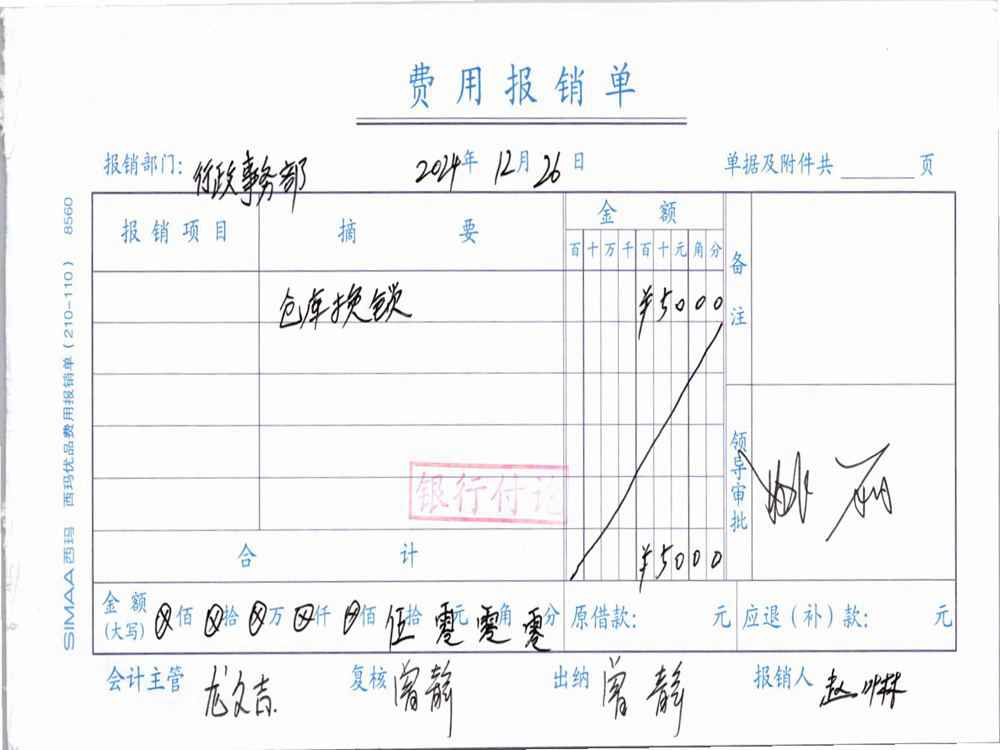 费用报销单
报销部门: 行政事务部 2024年 12月 26日 单据及附件共 页
报销项目 摘要 金额 备注
百 十 万 千 百 十 元 角 分
仓库换锁 ¥5000
领导审批 姚丽
银行付讫
合计 ¥5000
金额(大写) ⊗佰 ⊗拾 ⊗万 ⊗仟 ⊗佰 伍拾 零元 零角 零分 原借款: 元 应退(补)款: 元
会计主管 龙文吉 复核 曾静 出纳 曾静 报销人 赵叶林
SIMAA西玛 西玛优品费用报销单(210-110) 8560